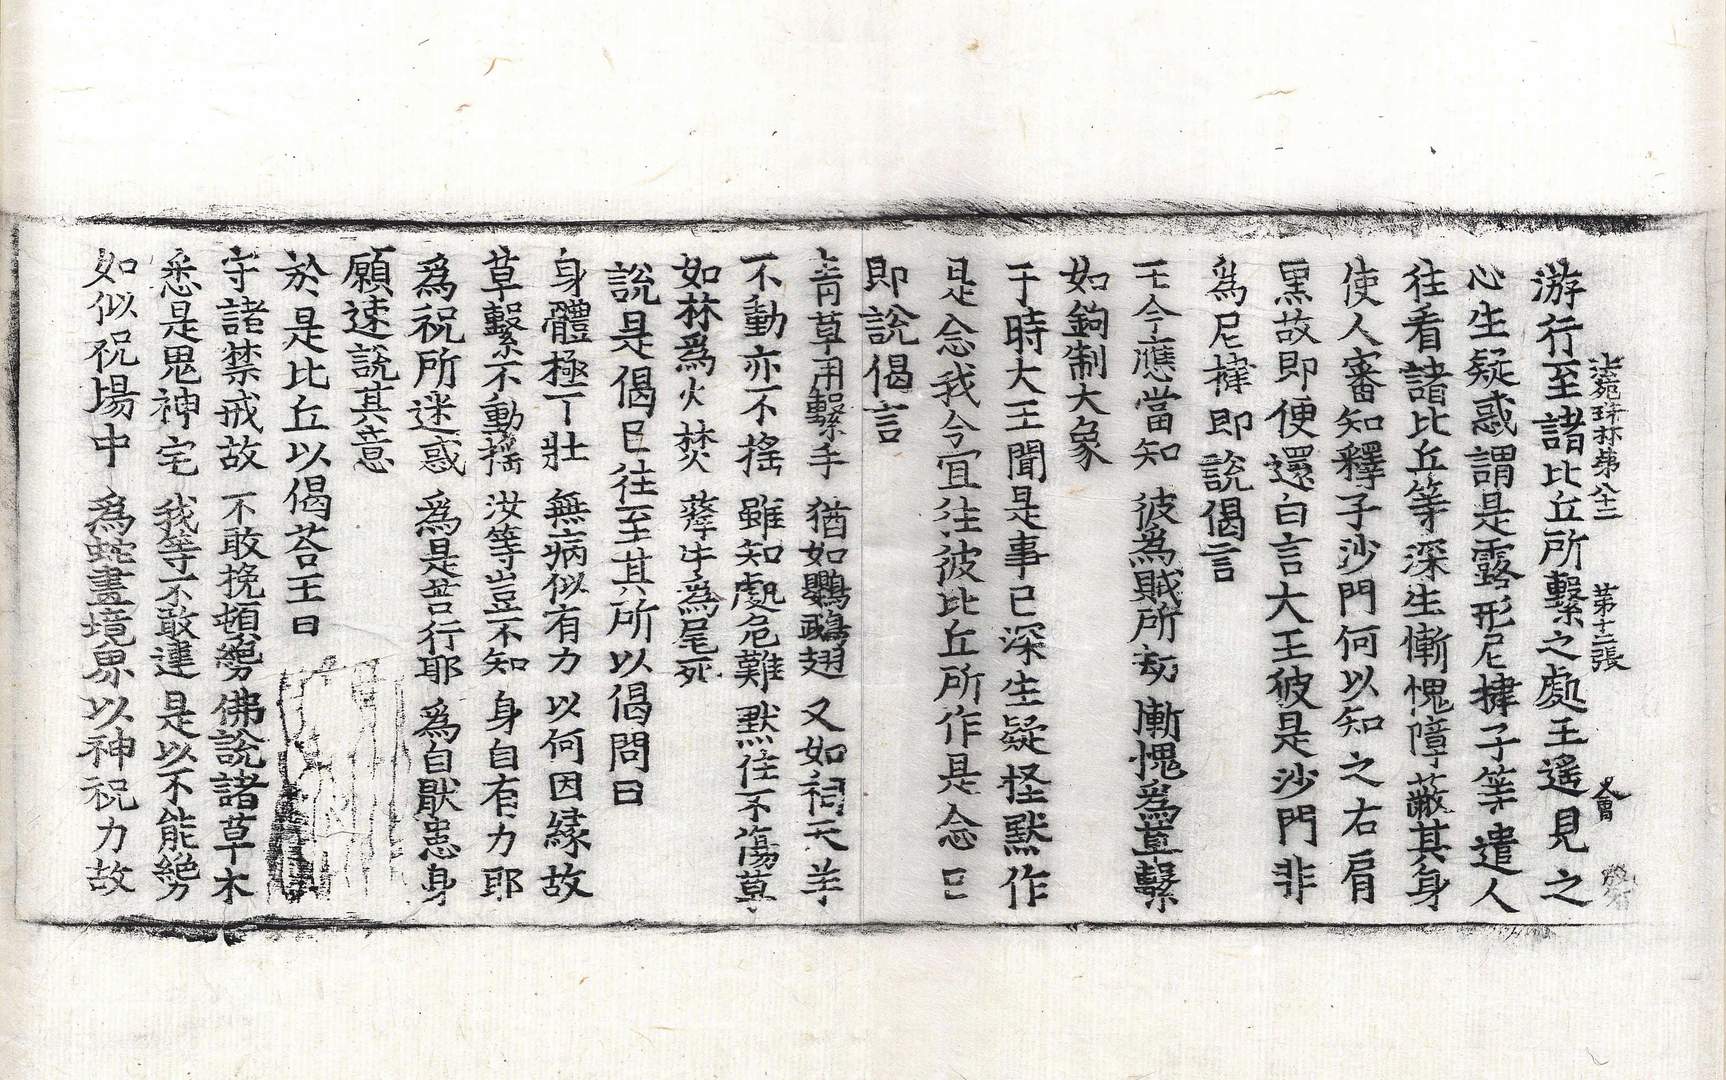 法苑珠林第八十二 第十二張 又會
游行至諸比丘所繫之處王遥見之
心生疑惑謂是露形尼揵子等遣人
往看諸比丘等深生慚愧障蔽其身
使人審知釋子沙門何以知之右肩
黒故即便還白言大王彼是沙門非
為尼揵即說偈言
王今應當知 彼為賊所劫 慚愧為草繫
如鉤制大象
于時大王聞是事已深生疑怪默作
是念我今宜往彼比丘所作是念已
即說偈言
青草用繫手 猶如鸚鵡翅 又如祠天羊
不動亦不搖 雖知處危難 默住不傷草
如林為火焚 犛牛為尾死
說是偈已往至其所以偈問曰
身體極丁壯 無病似有力 以何因緣故
草繫不動搖 汝等豈不知 身自有力耶
為祝所迷惑 為是苦行耶 為自猒患身
願速說其意
於是比丘以偈荅王曰
守諸禁戒故 不敢挽頓絕 佛說諸草木
悉是鬼神宅 我等不敢違 是以不能絕
如似祝場中 為蛇畫境界 以神祝力故